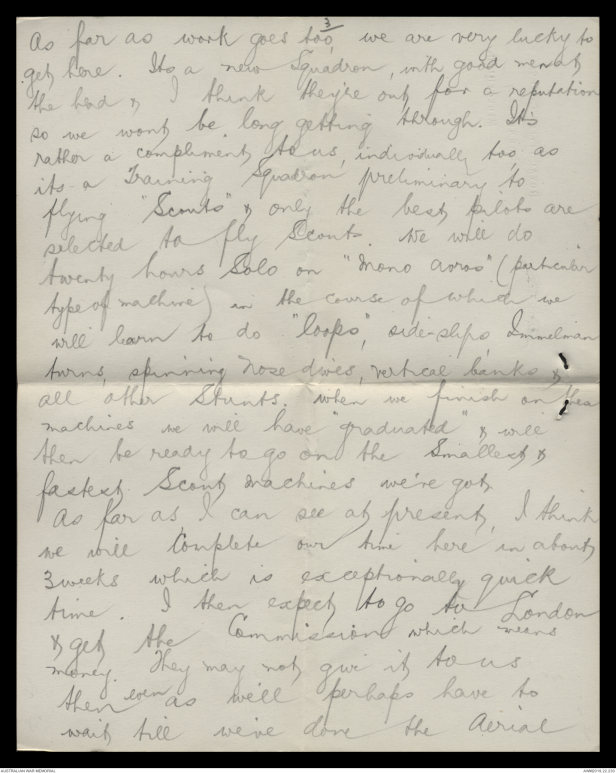 3
As far as work goes too, we are very lucky to
get here. Its a new Squadron, with good men at
the head & I think they're out for a reputation
so we wont be long getting through. It's
rather a compliment to us, individually too as
its a Training Squadron preliminary to
flying "Scouts" & only the best pilots are
selected to fly Scouts. We will do
twenty hours Solo on "Mono avros" (particular
type of machine) in the course of which we
will learn to do "loops", side-slips Immelman
turns, spinning nose dives, vertical banks &
all other Stunts. When we finish on thea
machines we will have "graduated" & will
then be ready to go on the Smallest &
fastest Scout machines we've got.
As far as I can see at present, I think
we will Complete our time here in about
3 weeks which is exceptionally quick
time. I then expect to go to London
& get the Commission which means
money. They may not give it to us
then even as we'll perhaps have to
wait till we've done the Aerial
AUSTRALIAN WAR MEMORIAL